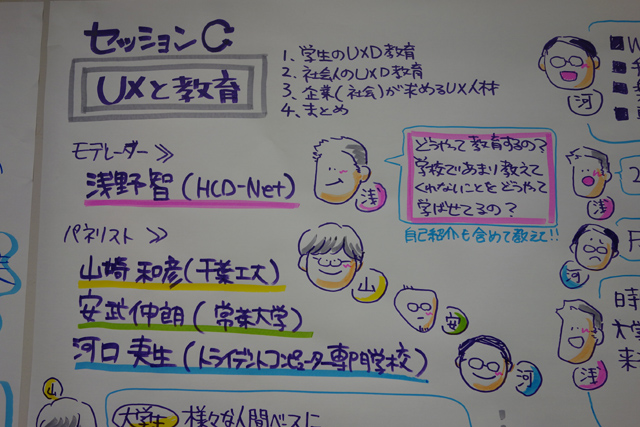 セッションC
UXと教育
1. 学生のUXD教育
2. 社会人のUXD教育
3. 企業(社会)が求めるUX人材
4. まとめ
モデレーター ≫
浅野智(HCD-Net)
浅
どうやって教育するの?
学校であまり教えて
くれないことをどうやって
学ばせてるの?
自己紹介も含めて教えて!!
パネリスト ≫
山崎和彦(千葉工大)
山
安武伸朗(常葉大学)
安
河口
(トライデントコンピューター専門学校)
河
河
浅
河
浅
2
時
大学
来
山
大学生 様々な人間ベースに